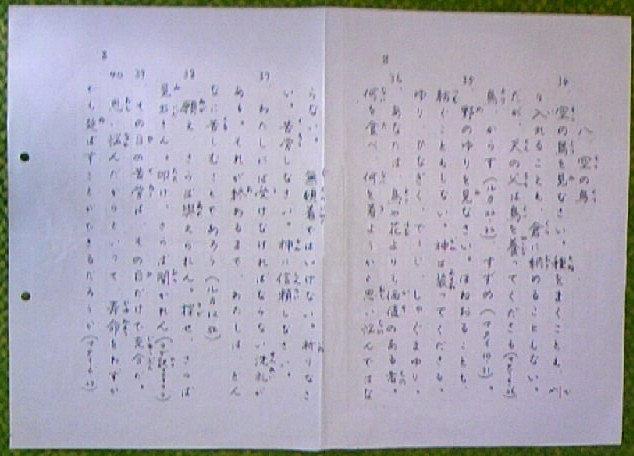 八、空の鳥
34 空の鳥を見なさい。種をまくことも、刈
り入れることも、倉に納めることもしない。
だが、天の父は鳥を養ってくださる
鳥、からす すずめ(マタイ10:31)。
35 野のゆりを見なさい。はねおることも、
紡ぐこともしない。神は装ってくださる。
ゆり、ひなぎく、でいじ、しゃぐまゆり。
36 あなたは、鳥や花よりも価値のある者。
何を食べ、何を着ようかと思い悩んではな
8
らない。無頓着ではいけない。祈りなさ
い。苦労しなさい。神に信頼しなさい。
37 わたしには受けなければならない洗礼が
ある。それが終わるまで、わたしは、どん
なに苦しむことであろう
38 願え、さらば与えられん。探せ、さらば
見出さん。叩け、さらば開かれん
39 その日の苦労は、その日だけで充分だ。
40 思い悩んだからといって、寿命をわずか
でも延ばすことができるだろうか
8